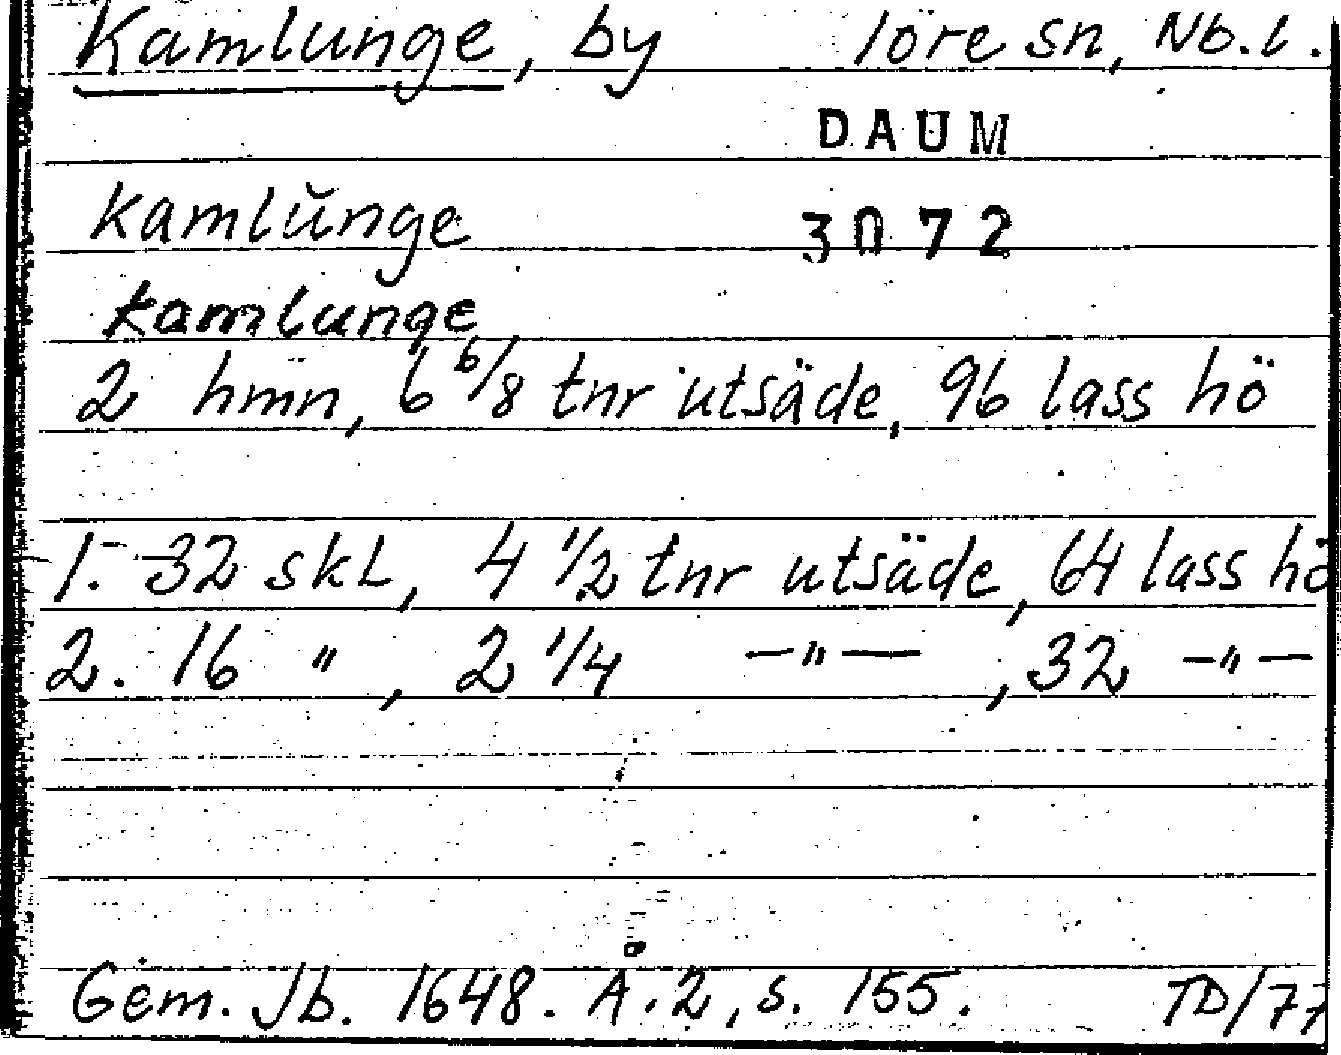 Kamlunge, by Töre sn, Nb.l.
DAUM
kamlŭnge 3072
kamlunge
2 hmn, 6 6/8 tnr utsäde, 96 lass hö
1. 32 skl, 4 1/2 tnr utsäde, 64 lass hö
2. 16 ", 2 1/4 -"-, 32 -"-
Gem. Jb. 1648. Å.2, s. 155. TD/77